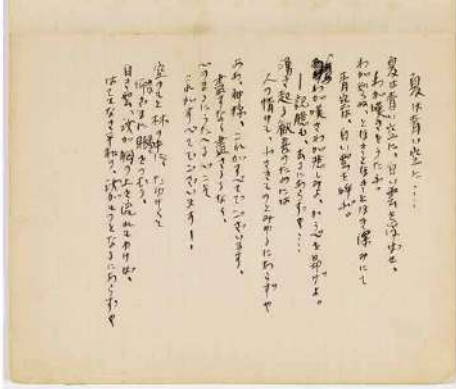 夏は青い空に……
夏は青い空に、白い雲を浮ばせ、
わが嘆きをうたふ。
わが知らぬ、とほきとほきとほき深みにて
青空は、白い雲を呼ぶ。
わが嘆きわが悲しみよ、かうべを昂げよ。
―記憶も、去るにあらずや……
湧き起る歓喜のためには
人の情けも、小さきものとみゆるにあらずや
ああ、神様、これがすべてでございます、
盡すなく盡さるるなく、
心のままにうたへる心こそ
これがすべてでございます!
空のもと林の中に、たゆけくも
仰ざまに をつむり、
白き雲、汝が胸の上を流れもゆけば、
はてもなき平和の、汝がものとなるにあらずや